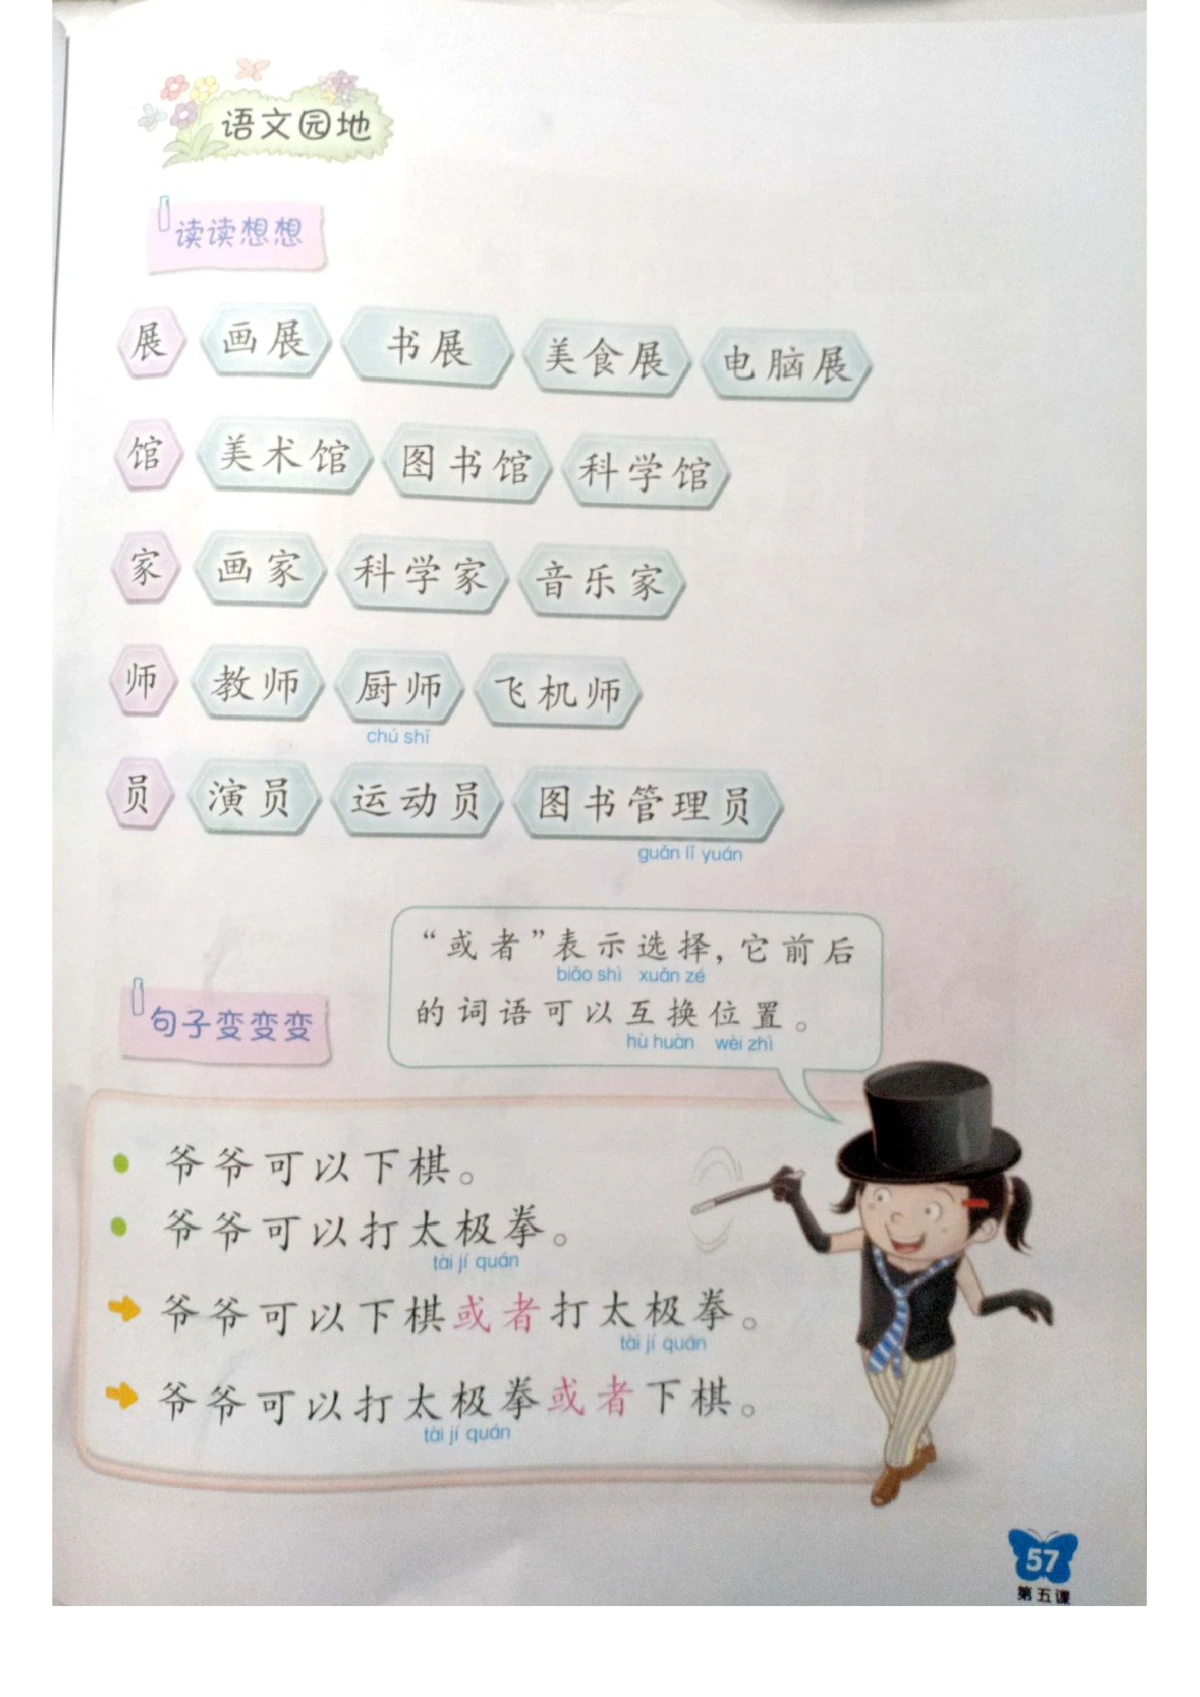 语文园地
读读想想
展 画展 书展 美食展 电脑展
馆 美术馆 图书馆 科学馆
家 画家 科学家 音乐家
师 教师 厨师 飞机师
chú shī
员 演员 运动员 图书管理员
guǎn lǐ yuán
“或者”表示选择，它前后
biǎo shì xuǎn zé
的词语可以互换位置。
hù huàn wèi zhì
句子变变变
爷爷可以下棋。
爷爷可以打太极拳。
tài jí quán
爷爷可以下棋或者打太极拳。
tài jí quán
爷爷可以打太极拳或者下棋。
tài jí quán
57
第五课